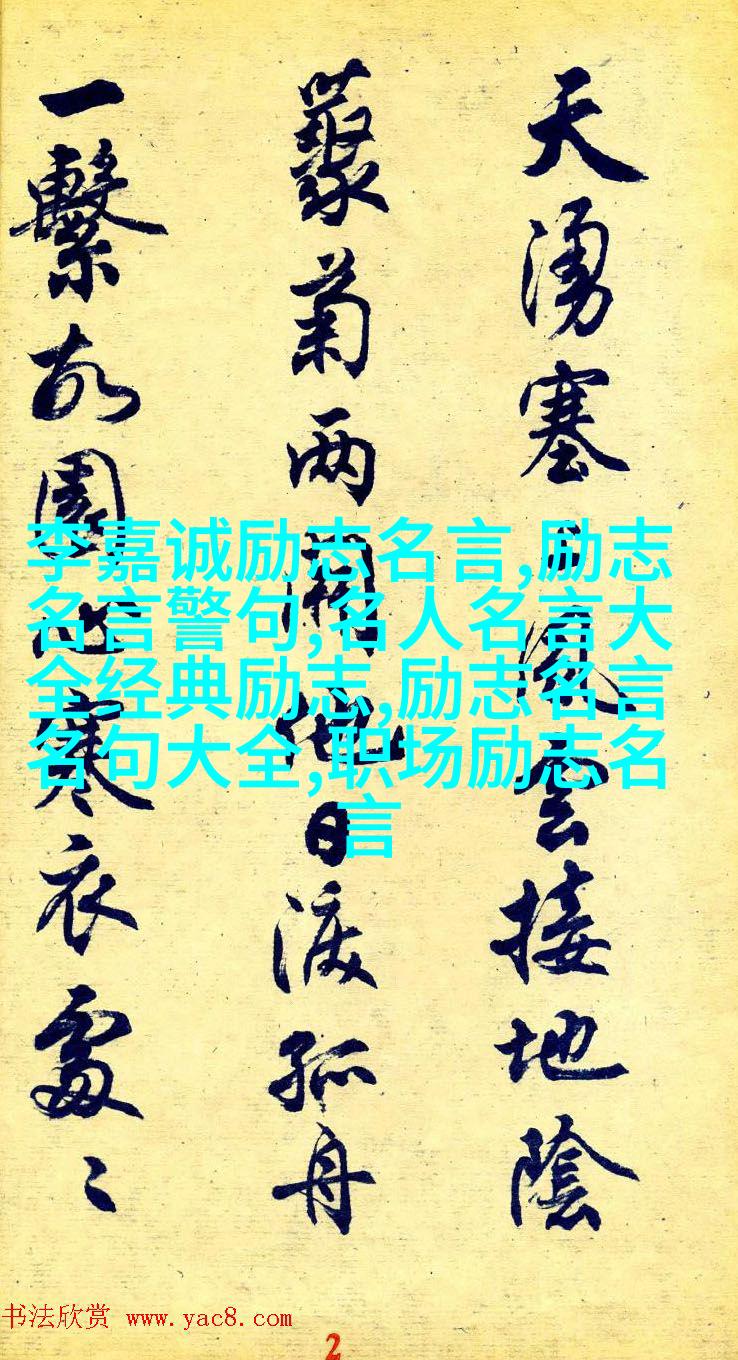 天湧塞上風雲接地陰
藂菊两開他日涙孤舟
一繫故園心寒衣處〻
李嘉诚励志名言,励志
名言警句,名人名言大
全经典励志,励志名言
名句大全,职场励志名
言
书法欣赏 www.yac8.com
2